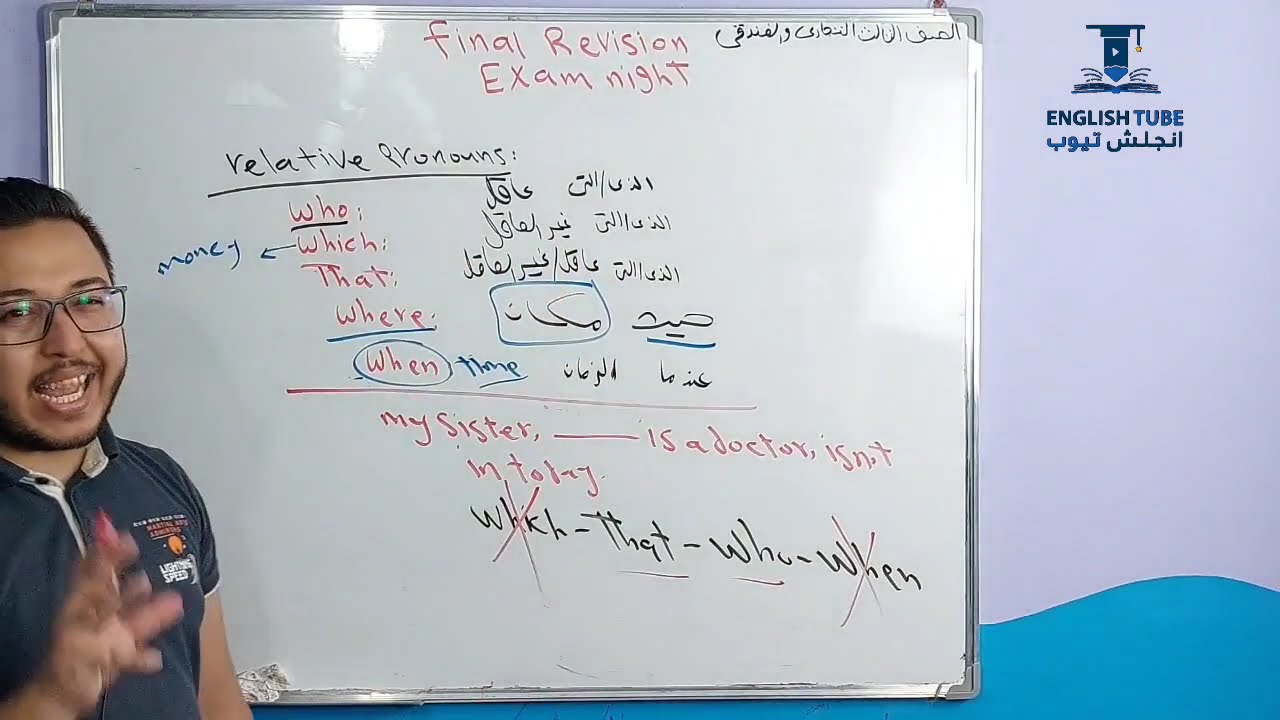 الصف الثالث التجارى والفندقى
Final Revision
Exam night
ENGLISH TUBE
انجلش تيوب
relative Pronouns:
who: الذى/التى عاقل
money ← which: الذى/التى غير العاقل
That: الذى/التى عاقل/غير العاقل
where: حيث مكان
when time عندما الزمان
my sister, ——— is a doctor, isn't
in today.
which - That - who - when
MARTIAL ARTS
LIGHTNING
SPEED